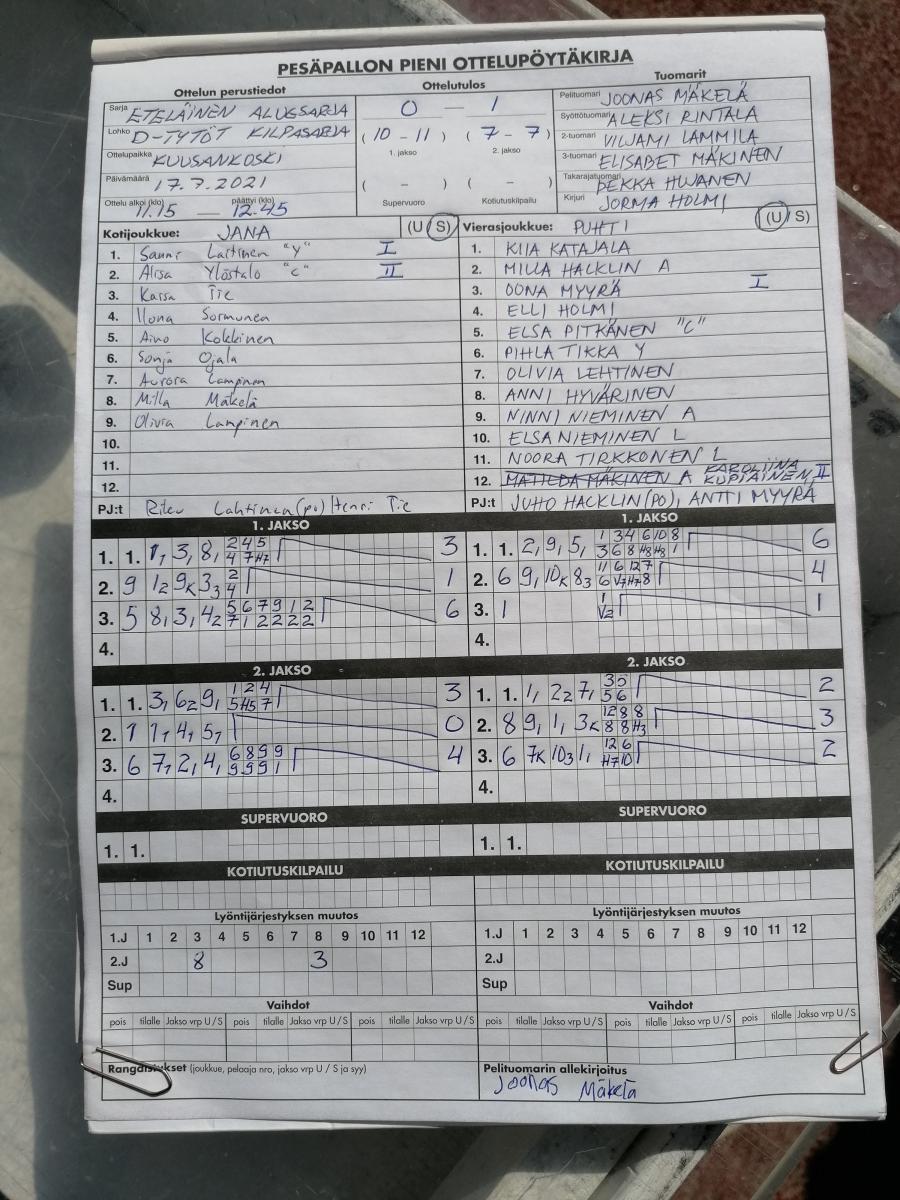 PESÄPALLON PIENI OTTELUPÖYTÄKIRJA
Ottelun perustiedot
Ottelutulos
Tuomarit
Sarja ETELÄINEN ALUESARJA
Lohko D-TYTÖT KILPASARJA
Ottelupaikka KUUSANKOSKI
Päivämäärä 17.7.2021
Ottelu alkoi (klo) 11.15 — päättyi (klo) 12.45
0 — 1
(10 - 11) (7 - 7)
1. jakso 2. jakso
( - ) ( - )
Supervuoro Kotiutuskilpailu
Pelituomari JOONAS MÄKELÄ
Syöttötuomari ALEKSI RINTALA
2-tuomari VILJAMI LAMMILA
3-tuomari ELISABET MÄKINEN
Takarajatuomari PEKKA HUJANEN
Kirjuri JORMA HOLMI
Kotijoukkue: JANA (U/S)
1. Sanni Laitinen "Y" I
2. Alisa Ylöstalo "C" II
3. Kaisa Tie
4. Ilona Sormunen
5. Aino Kokkinen
6. Sonja Ojala
7. Aurora Lampinen
8. Milla Mäkelä
9. Olivia Lampinen
10.
11.
12.
PJ:t Lahtinen (po) Henri Tie
Vierasjoukkue: PUHTI (U/S)
1. KIIA KATAJALA
2. MILLA HACKLIN A
3. OONA MYYRÄ I
4. ELLI HOLMI
5. ELSA PITKÄNEN "C"
6. PIHLA TIKKA Y
7. OLIVIA LEHTINEN
8. ANNI HYVÄRINEN
9. NINNI NIEMINEN A
10. ELSA NIEMINEN L
11. NOORA TIRKKONEN L
12. MATILDA MÄKINEN A KAROLIINA KUPIAINEN II
PJ:t JUHO HACKLIN (PO), ANTTI MYYRÄ
1. JAKSO
1. 1. 1, 3, 8, 2 4 5 3
4 7 H7
2. 9 1 2 9K 3 3 2 1
4
3. 5 8, 3, 4 2 5 6 7 9 1 2 6
7 1 2 2 2 2
4.
1. JAKSO
1. 1. 2, 9, 5, 1 3 4 6 10 8 6
3 6 8 H8 H8 1
2. 6 9, 10K 8 3 11 6 12 7 4
6 V7 H7 8
3. 1 1 1
V2
4.
2. JAKSO
1. 1. 3, 6 2 9, 1 2 4 3
5 H5 7
2. 1 1, 4, 5, 0
3. 6 7, 2, 4, 6 8 9 9 4
9 9 9 1
4.
2. JAKSO
1. 1. 1, 2 2 7, 3 5 2
5 6
2. 8 9, 1, 3K 12 8 8 3
8 8 H3
3. 6 7K 10 3 1, 12 6 2
H7 10
4.
SUPERVUORO
1. 1.
SUPERVUORO
1. 1.
KOTIUTUSKILPAILU
KOTIUTUSKILPAILU
Lyöntijärjestyksen muutos
1.J 1 2 3 4 5 6 7 8 9 10 11 12
2.J 8 3
Sup
Lyöntijärjestyksen muutos
1.J 1 2 3 4 5 6 7 8 9 10 11 12
2.J
Sup
Vaihdot
pois tilalle Jakso vrp U/S pois tilalle Jakso vrp U/S pois tilalle Jakso vrp U/S
Vaihdot
pois tilalle Jakso vrp U/S pois tilalle Jakso vrp U/S pois tilalle Jakso vrp U/S
Rangaistukset (joukkue, pelaaja nro, jakso vrp U / S ja syy)
Pelituomarin allekirjoitus
Joonas Mäkelä